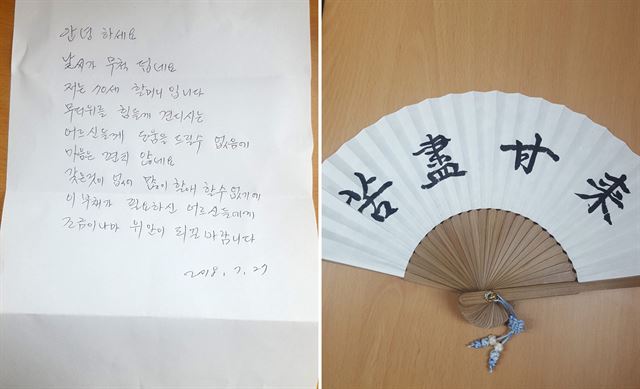 안녕 하세요
날씨가 무척 덥네요
저는 70세 할머니 입니다
무더위를 힘들게 견디시는
어르신들께 도움을 드릴수 없음에
마음은 편치 않네요
갖은것이 없어 많이 할애 할수 없기에
이 부채가 필요하신 어르신들에게
조금이나마 위안이 되길 바랍니다
2018. 7. 27
苦盡甘來